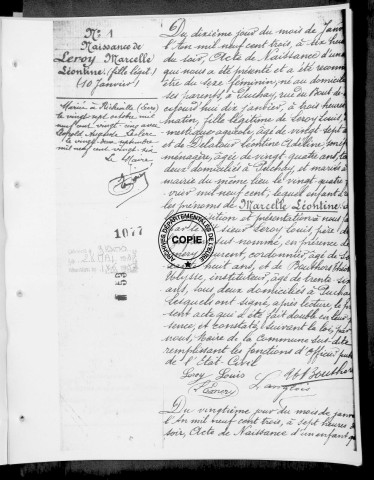 No 1
Naissance de
Leroy Marcelle
Léontine (fille légit.)
(10 Janvier)
Marié à Richeville (Eure)
le vingt sept octobre mil
neuf cent vingt
Le Maire
1077
53
ARCHIVES DÉPARTEMENTALES DE L'EURE
COPIE
Du dixième jour du mois de Janv
l'An mil neuf cent trois, à six heu
du soir, Acte de Naissance d'un
qui nous a été présenté et a été reconn
être du sexe féminin, né au domicile
ses parents, à Puchay, rue du Bout de
cejourd'hui dix janvier, à trois heures
matin, fille légitime de Leroy Louis
domestique agricole, âgé de vingt-sept a
et de Delatour Léontine Adeline, son
ménagère, âgée de vingt quatre ans, to
deux domiciliés à Puchay, et mariés à
mairie du même lieu le vingt quatre
vrier mil neuf cent, lequel enfant
les prénoms de Marcelle Léontine
position et présentation à nous fa
par le sieur Leroy Louis, père de
nommé, en présence de
cordonnier, âgé de
huit ans, et de Beuthors
Ulysse, instituteur, âgé de trente
ans, tous deux domiciliés à Puchay
lesquels ont signé, après lecture, le pré
sent acte qui a été fait double en leur
sence, et constaté suivant la loi, par
nous, Maire de la Commune sus-dite
remplissant les fonctions d'Officier pub
de l'Etat-Civil
Leroy Louis Beuthors
Langlois
Du vingtième jour du mois de janv
l'An mil neuf cent trois, à sept heures
soir, Acte de Naissance d'un enfant q